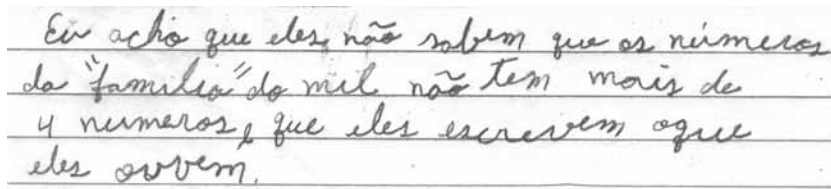 Eu acho que eles não sabem que os números
da "familia" do mil não tem mais de
4 numeros, que eles escrevem oque
eles ovvem.